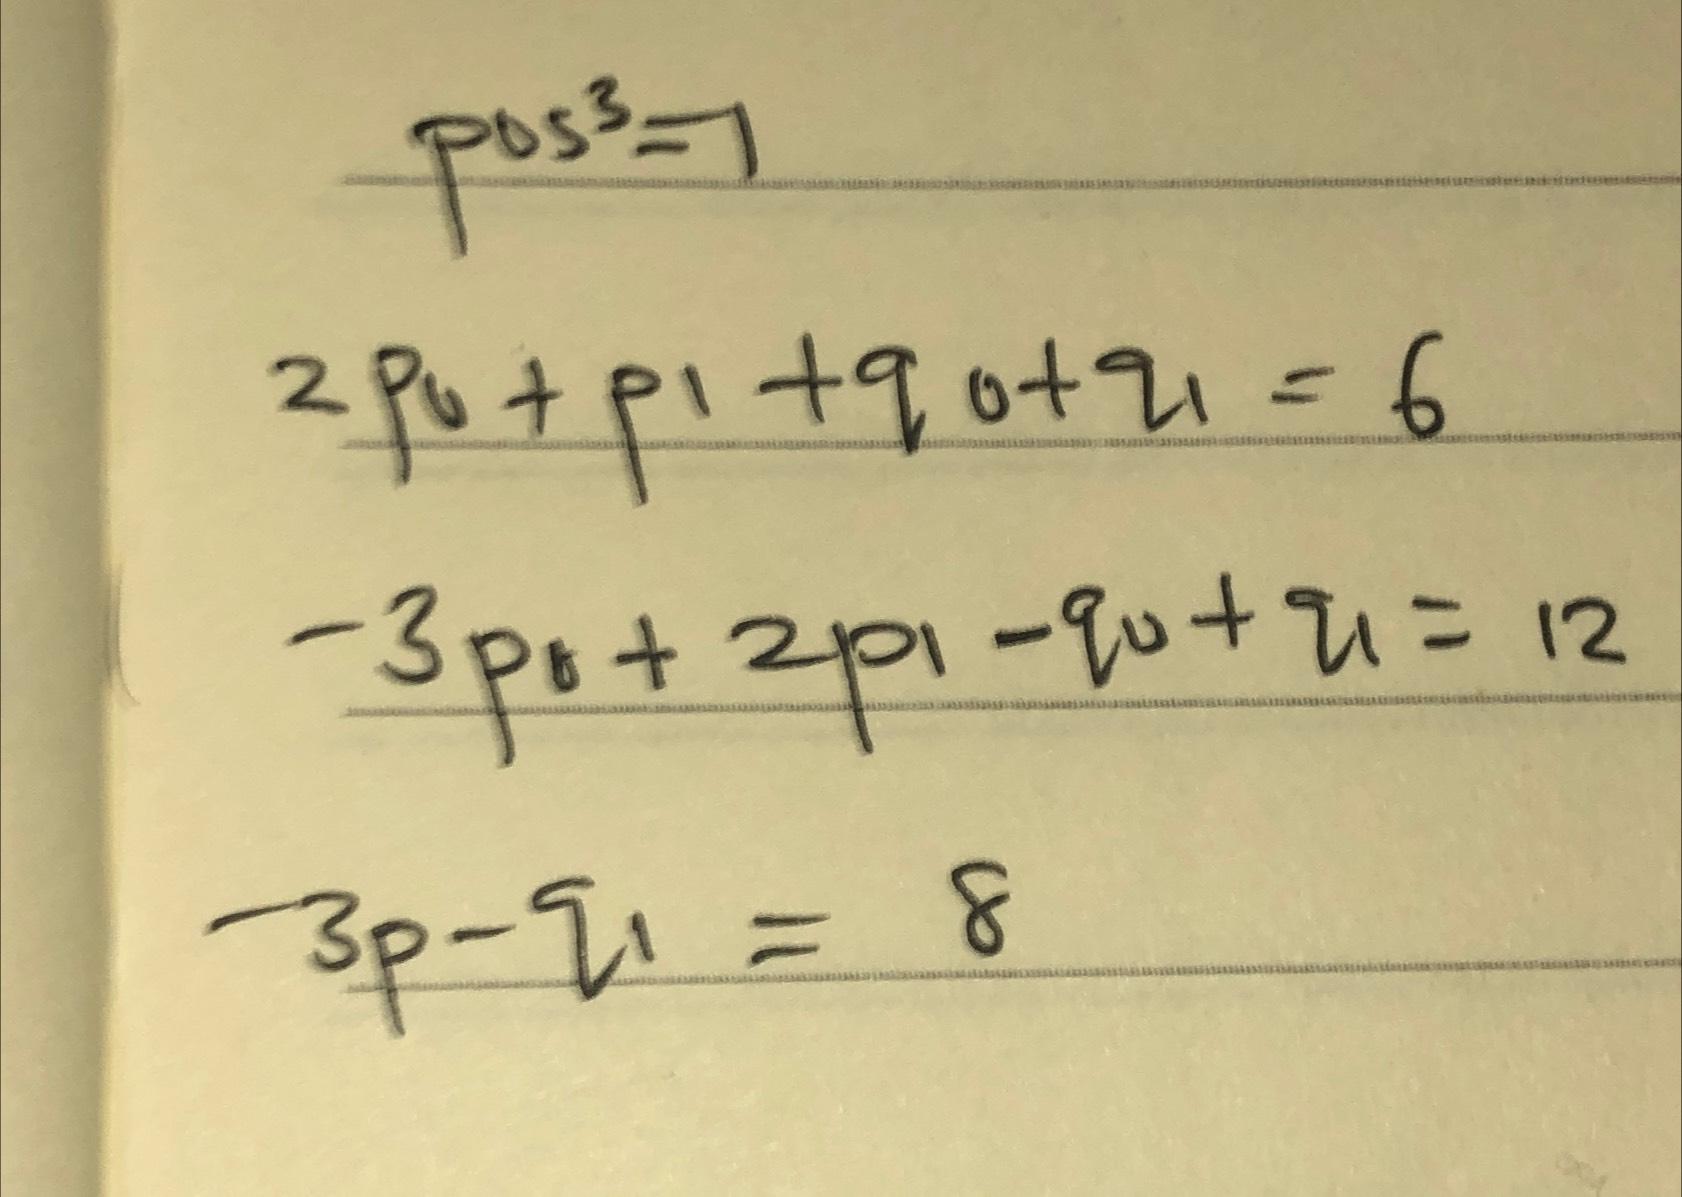 p0s³=1
2p0+p1+q0+q1 = 6
-3p0+2p1-q0+q1= 12
-3p-q1 = 8